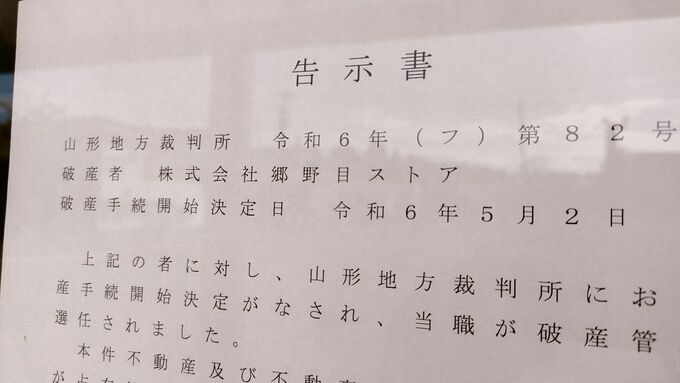 告示書
山形地方裁判所 令和6年(フ)第82号
破産者 株式会社郷野目ストア
破産手続開始決定日 令和6年5月2日
上記の者に対し、山形地方裁判所にお
産手続開始決定がなされ、当職が破産管
選任されました。
本件不動産及び不動産